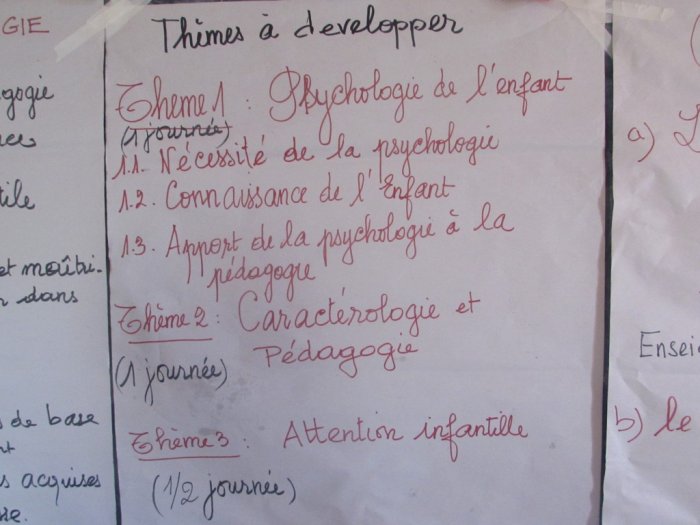 GIE
gogie
tile
et maîtri-
dans
s de base
s acquises
Thèmes à developper
Theme 1 : Psychologie de l'enfant
(1 journée)
1.1. Nécessité de la psychologie
1.2. Connaissance de l'Enfant
1.3. Apport de la psychologie à la
pédagogie
Thème 2 : Caractérologie et
Pédagogie
(1 journée)
Thème 3 : Attention infantille
(1/2 journée)
a)
Ensei
b) le